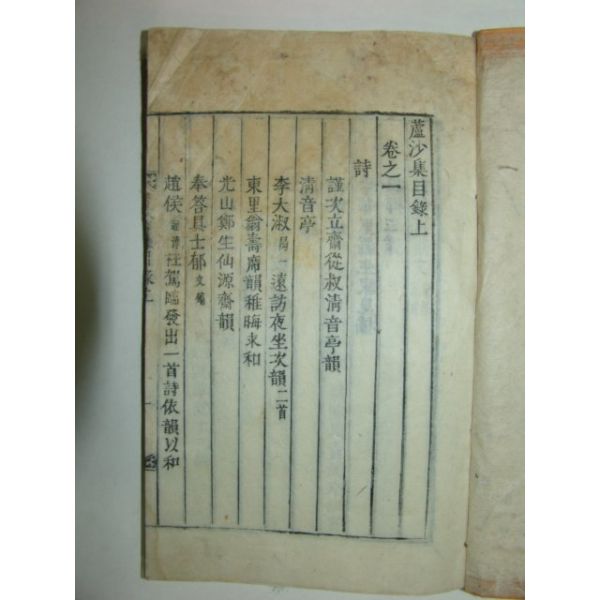 蘆沙集目錄上
卷之一
詩
謹次立齋從叔清音亭韻
清音亭
李大淑 遠訪夜坐次韻 二首
東里翁壽席韻稚晦求和
光山鄭生仙源齋韻
奉答具士郁
趙侯 枉駕臨發出一首詩依韻以和